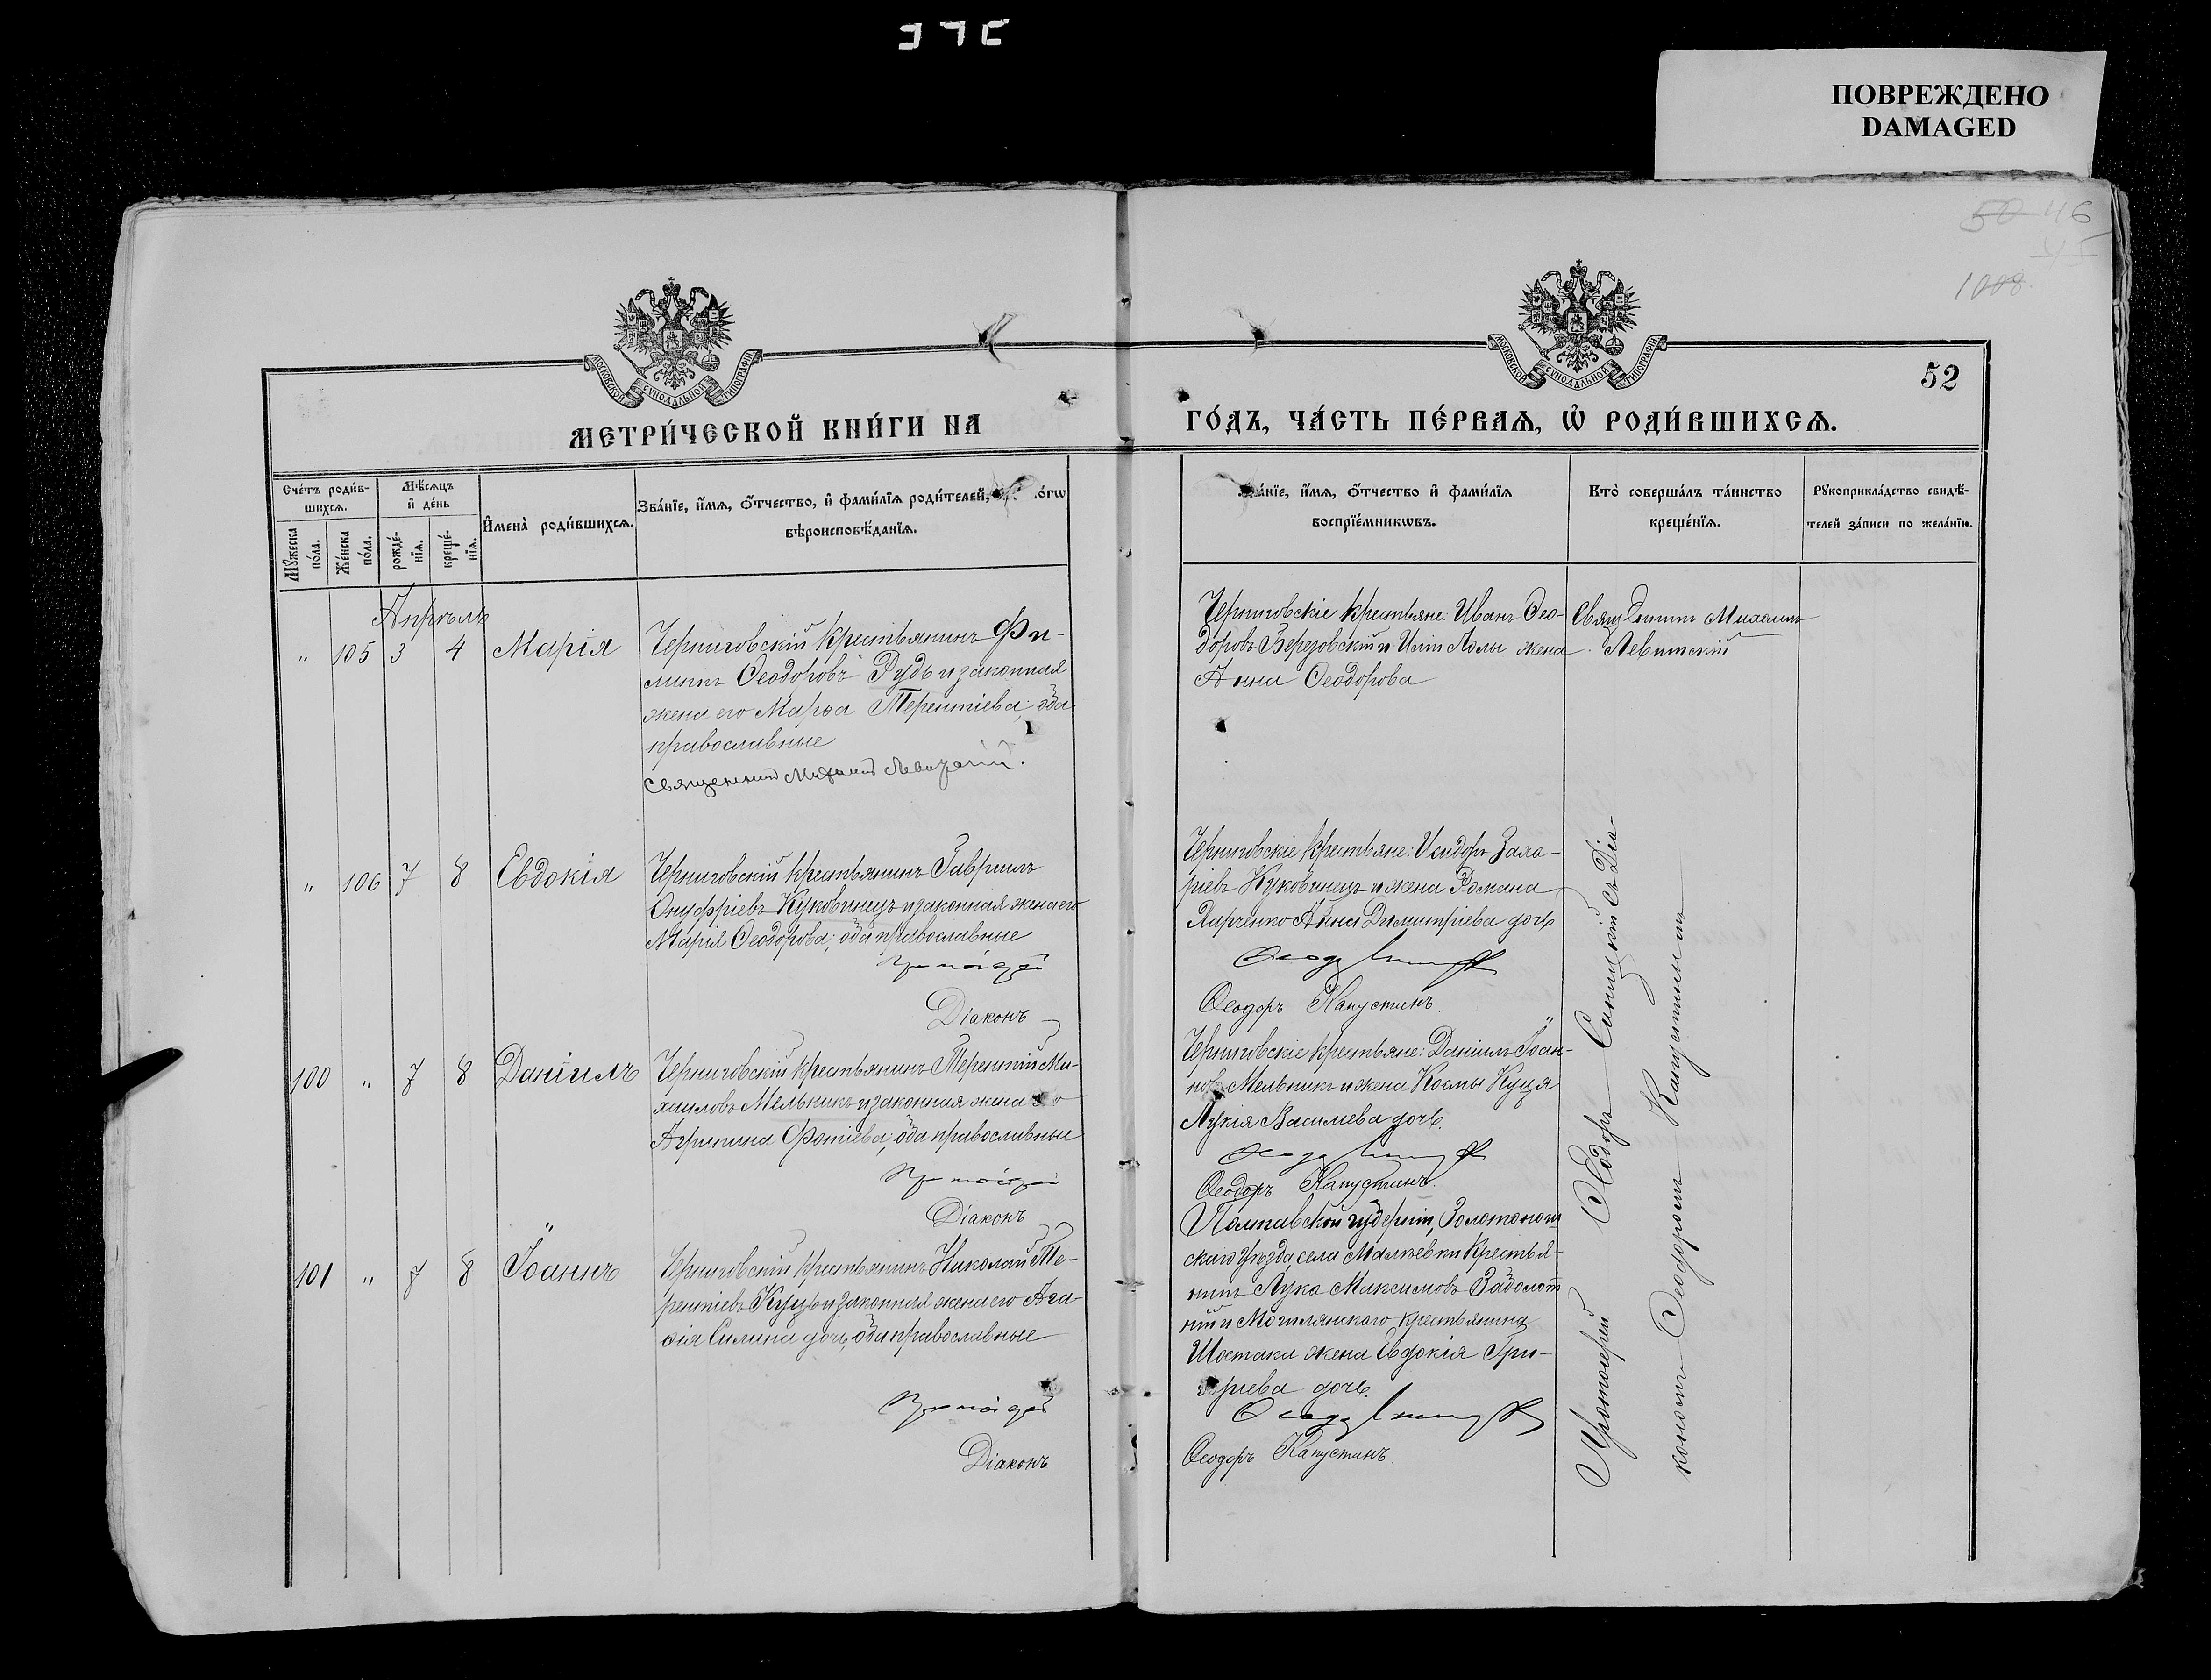 ПОВРЕЖДЕНО
DAMAGED
50 46
45
1008
52
МОСКОВСКОЙ СУНОДАЛЬНОЙ ТИПОГРАФІИ
МОСКОВСКОЙ СУНОДАЛЬНОЙ ТИПОГРАФІИ
МЕТРИ́ЧЕСКОЙ КНИ́ГИ НА
ГО́ДЪ, ЧА́СТЬ ПЕ́РВАЯ, Ѽ РОДИ́ВШИХСЯ.
Сче́тъ роди́в-
шихся.
Мѣ́сяцъ
и҆ де́нь
Мꙋ́жеска
по́ла.
Же́нска
по́ла.
рожде́-
нїя.
креще́-
нїя.
И҆мена̀ роди́вшихся.
Зва́нїе, и҆́мя, ѻ҆́тчество, и҆ фами́лїя роди́телей,
о́гѡ
вѣроисповѣ́данїя.
ва́нїе, и҆́мя, ѻ҆́тчество и҆ фами́лїя
воспрїе́мникѡвъ.
Кто̀ соверша́лъ та́инство
креще́нїя.
Рꙋкоприкла́дство свидѣ́-
телей за́писи по жела́нїю.
Апрѣль
" 105 3 4 Марія
Черниговскій крестьянинъ Фи-
липпъ Ѳеодоровъ Рудь и законная
жена его Марѳа Терентіева; оба
православные
Священникъ Михаилъ Левитскій.
Черниговскіе крестьяне: Иванъ Ѳео-
доровъ Березовскій и жена
Анна Ѳеодорова
Священникъ Михаилъ
Левитскій
" 106 7 8 Евдокія
Черниговскій крестьянинъ Гавріилъ
Онуфріевъ Куковинецъ и законная жена его
Марія Ѳеодорова; оба православные
Протоіерей
Діаконъ
Черниговскіе крестьяне: Исидоръ Заха-
ріевъ Куковинецъ и жена Романа
Харченко Анна Димитріева дочь
Ѳеодоръ Капустинъ.
100 " 7 8 Даніилъ
Черниговскій крестьянинъ Терентій Ми-
хаиловъ Мельникъ и законная жена его
Агрипина Фотіева; оба православные
Протоіерей
Діаконъ
Черниговскіе крестьяне: Даніилъ Іоан-
новъ Мельникъ и жена Космы Куця
Лукія Василіева дочь.
Ѳеодоръ Капустинъ.
101 " 7 8 Іоаннъ
Черниговскій крестьянинъ Николай Те-
рентіевъ Куцъ и законная жена его Ага-
ѳія Силина дочь, оба православные
Протоіерей
Діаконъ
Полтавской губерніи, Золотонош
скаго уѣзда, села Малѣевки крестья-
нинъ Лука Максимовъ Заболот
ній и Могилянскаго крестьянина
Шостака жена Евдокія Гри-
горіева дочь.
Ѳеодоръ Капустинъ.
Протоіерей Ѳеодоръ съ Діа-
кономъ Ѳеодоромъ Капустинымъ